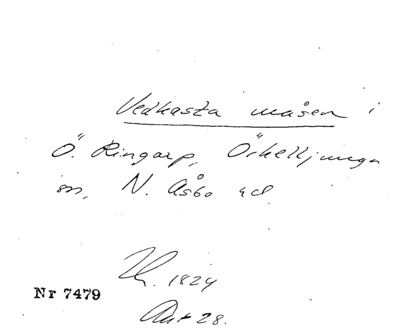 Vedkasta måsen i
Ö. Ringarp, Örkelljunga
sn, N. Åsbo hd
1824
Nr 7479
Akt 28.